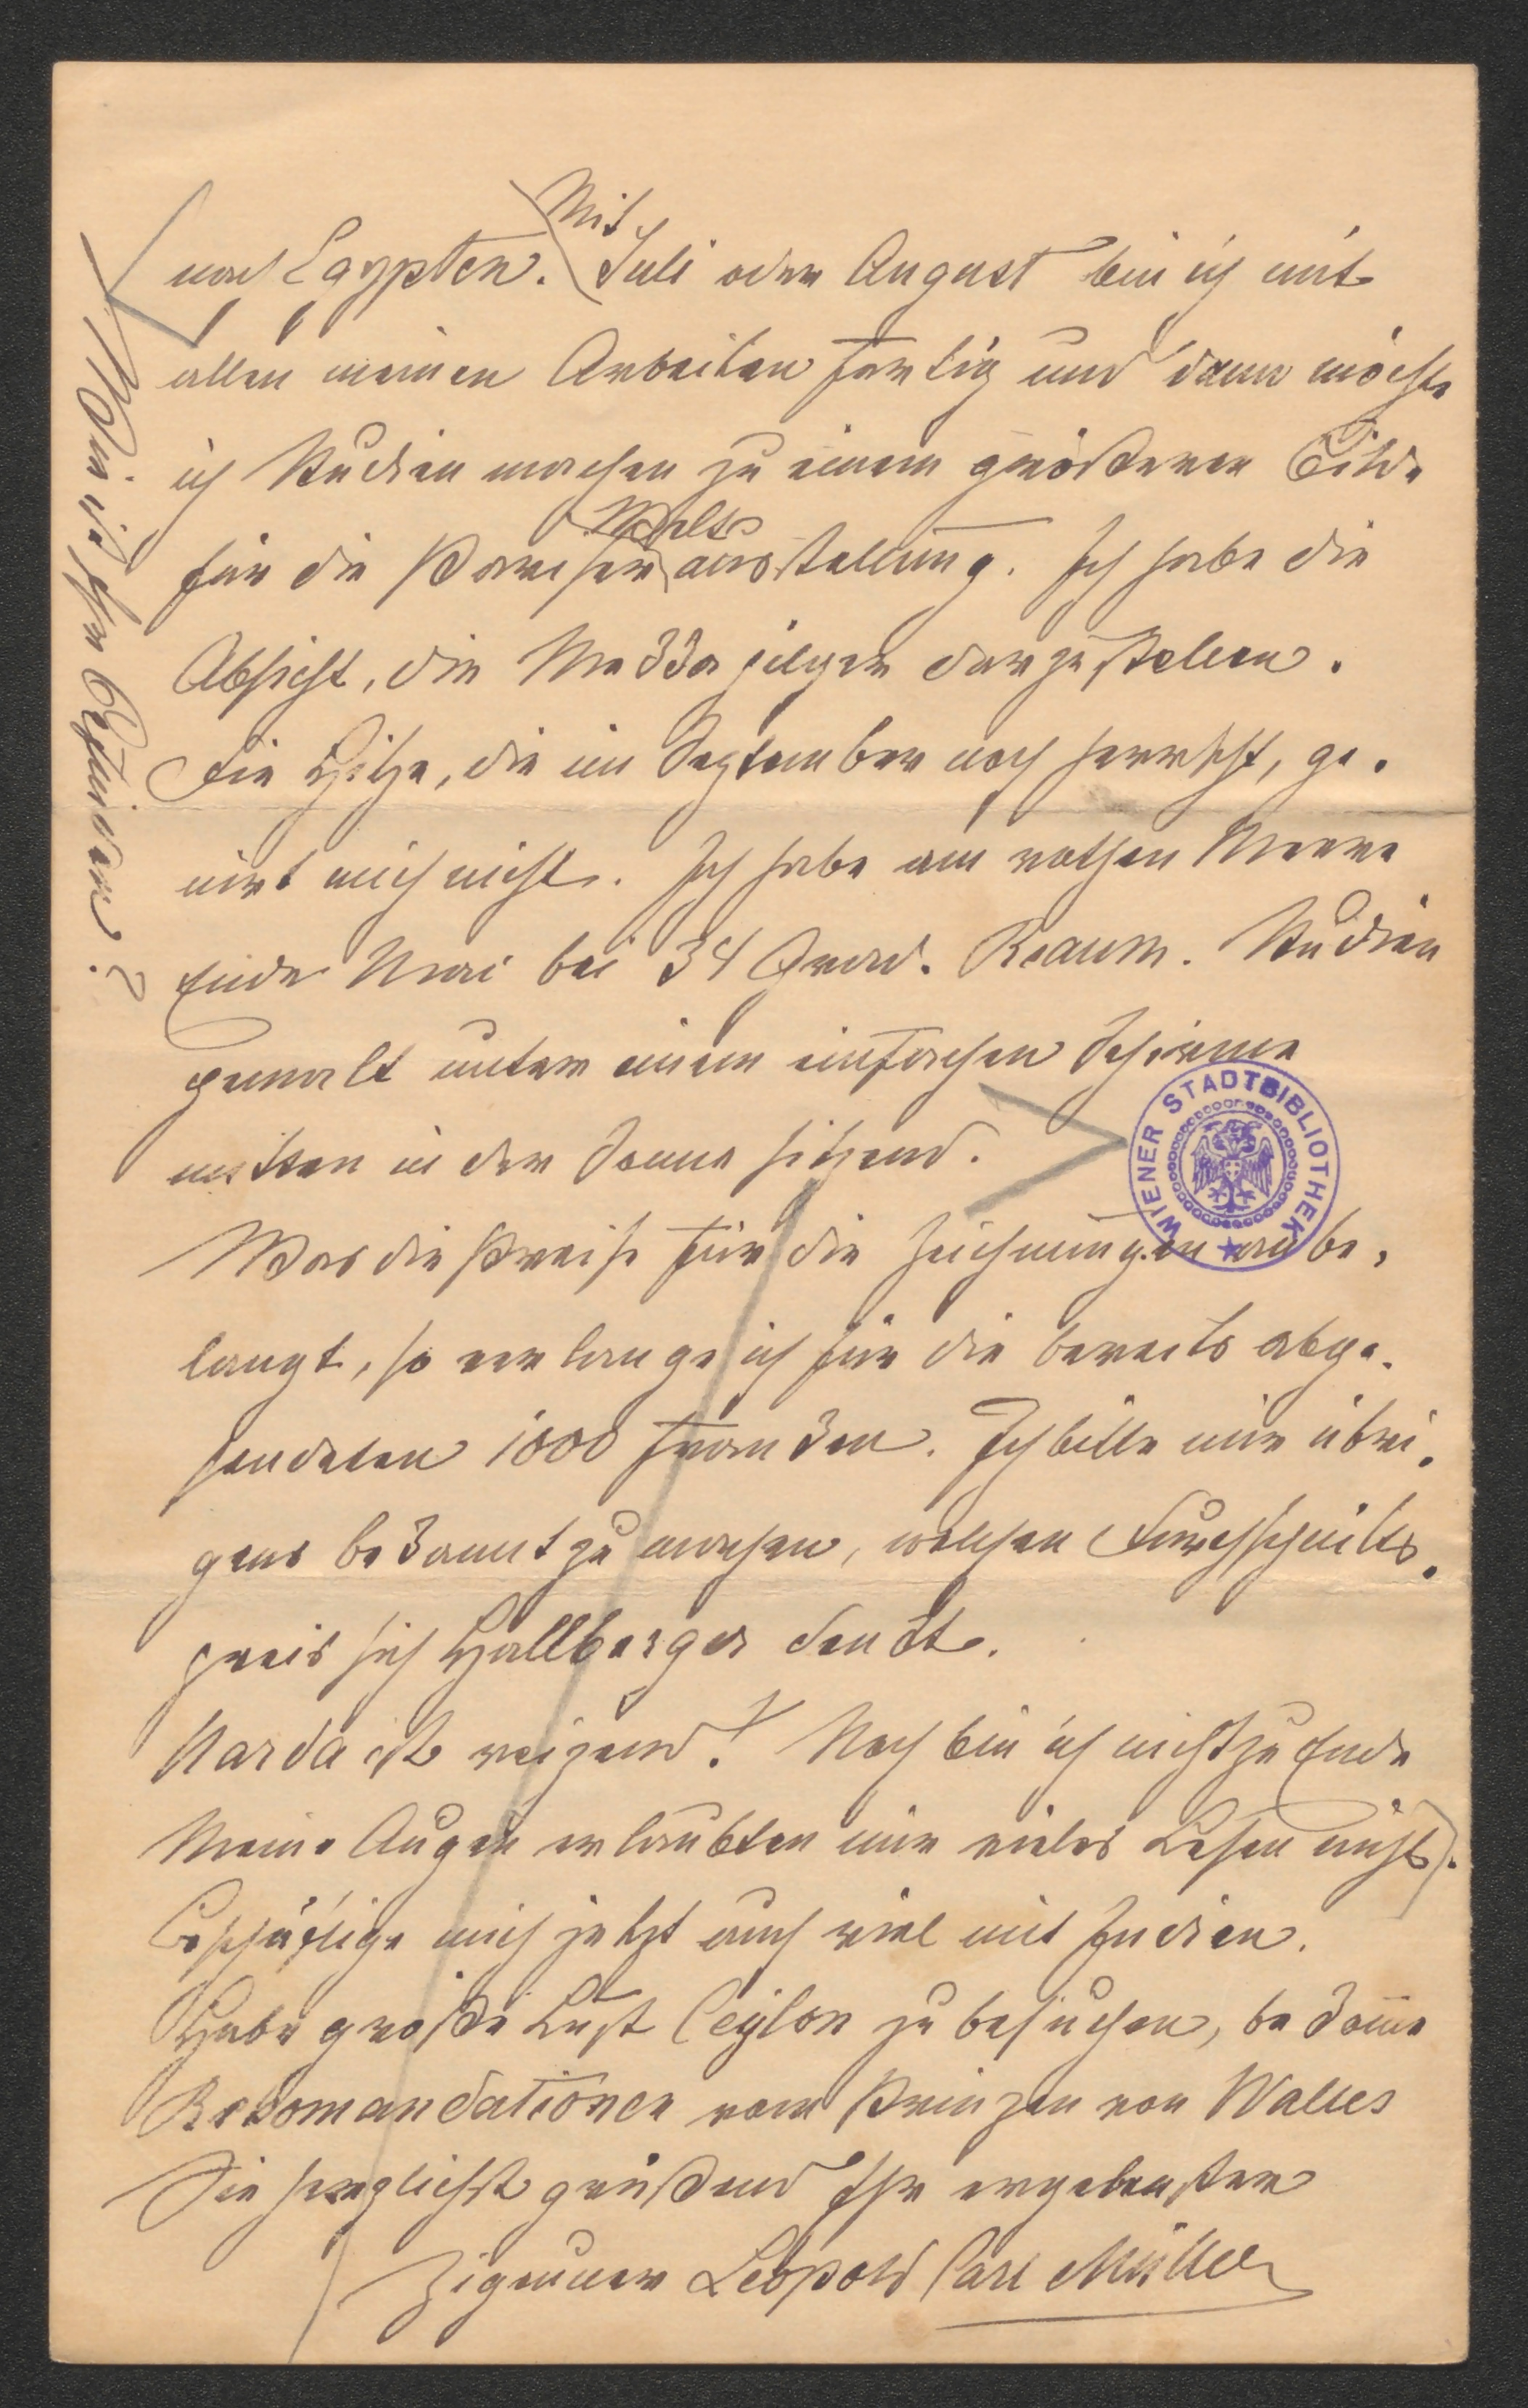 nach Egypten. Mit Juli oder August bin ich mit
allen meinen Arbeiten fertig und dann möchte
ich Studien machen zu einem größeren Bilde
für die Pariser Weltausstellung. Ich habe die
Absicht, die Mekkapilger darzustellen.
Die Hitze, die im September noch herrscht, ge-
nirt mich nicht. Ich habe am rothen Meere
Ende Mai bei 34 Grad. Reaum. Studien
gemalt unter einem einfachen Schirme
mitten in der Sonne sitzend.
Was die Preise für die Zeichnungen anbe-
langt, so verlange ich für die bereits abge-
sendeten 1000 Franken. Ich bitte mir übri-
gens bekannt zu machen, welchen Durchschnitts-
preis sich Hallberger denkt.
Uarda ist reizend! Noch bin ich nicht zu Ende
Meine Augen erlaubten mir vieles Lesen nicht.
Beschäftige mich jetzt auch viel mit Indien.
Habe große Lust Ceylon zu besuchen, bekomme
Rekomandationen vom Prinzen von Walles
Sie herzlichst grüßend Ihr ergebenster
Zigeuner Leopold Carl Müller
Wie ist Ihr Befinden?
WIENER STADTBIBLIOTHEK